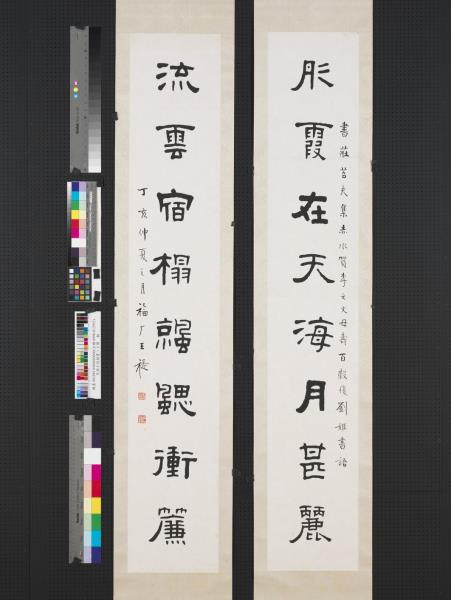 彤霞在天海月甚麗
書莊 夫集赤水賀李 母壽百穀復劉姬書語
流雲宿榻 颸衝簾
丁亥仲夏之月福厂王禔